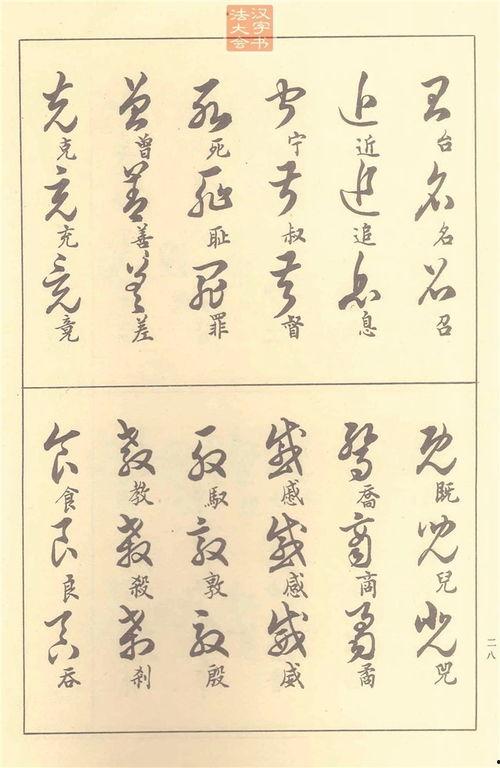 汉字书
法大会
台名召
近追息
宁叔督
死耻罪
曾善差
克充竟
既兒兕
喬商矞
慼感威
馭敦殷
教殺刹
食良吞
二八